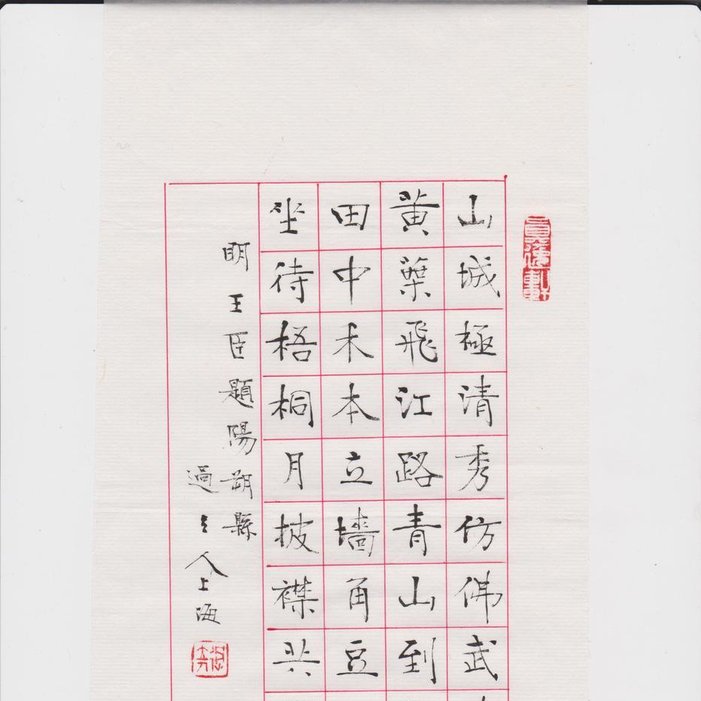 山城極清秀仿佛武
黃葉飛江路青山到
田中禾本立墻角豆
坐待梧桐月披襟共
明王臣題陽朔縣
過之人上海